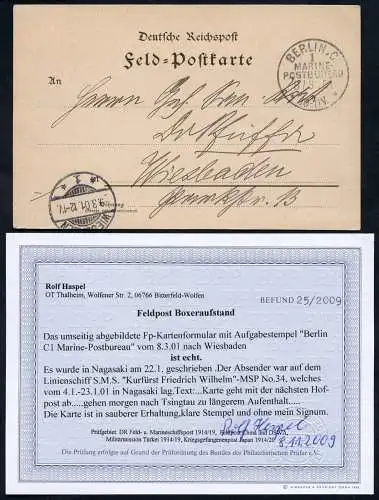 Deutsche Reichspost
Feld-Postkarte
BERLIN C.
1
MARINE-
POSTBUREAU
An
Herrn
Wiesbaden
9.3.01. 12-1V.
WIESBADEN
Rolf Haspel
OT Thalheim, Wolfener Str. 2, 06766 Bitterfeld-Wolfen
BEFUND 25/2009
Feldpost Boxeraufstand
Das umseitig abgebildete Fp-Kartenformular mit Aufgabestempel "Berlin
C1 Marine-Postbureau" vom 8.3.01 nach Wiesbaden
ist echt.
Es wurde in Nagasaki am 22.1. geschrieben .Der Absender war auf dem
Linienschiff S.M.S. "Kurfürst Friedrich Wilhelm"-MSP No.34, welches
vom 4.1.-23.1.01 in Nagasaki lag.Text:...Karte geht mit der nächsten Hof-
post ab.....gehen morgen nach Tsingtau zu längerem Aufenthalt.....
Die Karte ist in sauberer Erhaltung,klare Stempel und ohne mein Signum.
Rolf Haspel
8.11.2009
Prüfgebiet: DR Feld- u. Marineschiffspost 1914/19, Feldpost China und DSWA,
Militärmission Türkei 1914/19, Kriegsgefangenenpost Japan 1914/20
Die Prüfung erfolgte auf Grund der Prüfordnung des Bundes der Philatelistischen Prüfer e.V.